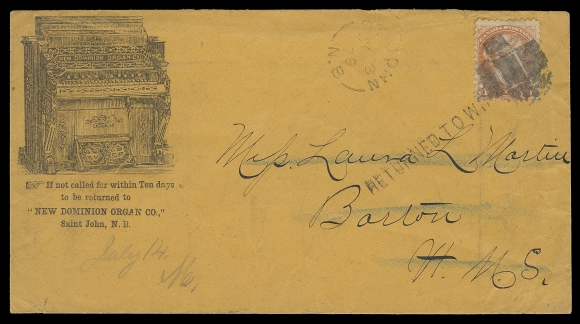 NEW DOMINION ORGAN CO.
☞ If not called for within Ten days
to be returned to
"NEW DOMINION ORGAN CO.,"
Saint John, N. B.
July 14
N.B.
RETURNED TO WR
Miss. Laura L Martin
Barton
H. M. S.